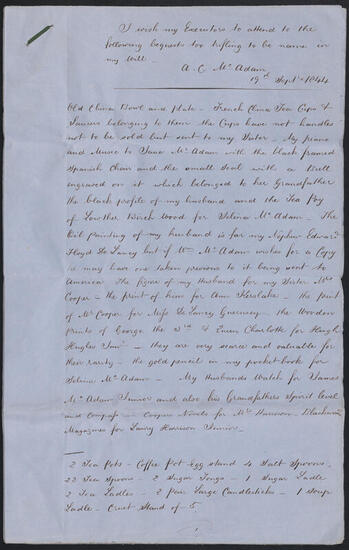 I wish my Executors to attend to the
following bequest too trifling to be name in
my Will.
A. C. McAdam
19th Septr 1844
Old China Bowl and plate - French China Tea Cups &
Saucers belonging to them the Cups have not handles
not to be sold but sent to my Sister - My piano
and Music to Jane McAdam with the black framed
Spanish Chair and the small Seal with a Bull
engraved on it which belonged to her Grandfather
the black profile of my husband and the Tea
of Lowther Birch Wood for Selina McAdam - The
Oil Painting of my husband is for my Nephew Edward
Floyd De Lancy but if Wm McAdam wishes for a Copy
is may have one taken previous to it being sent to
America The figure of my Husband for my Sister Mrs
Cooper - the print of him for Ann Keerlake - the print
of Mr Cooper for Miss De Lancy Guernsey - the Wooden
Prints of George the 3rd & Queen Charlotte for Hugh
Hughes Junr - they are very scarce and valuable for
their rarity - the gold pencil in my pocket book for
Selina McAdam - My Husbands Watch for James
McAdam Junior and also his Grandfathers Spirit level
and Compass - Coopers Novels for Mr Harrison - Blackwoods
Magazines for Harrison Junior
2 Tea Pots - Coffee Pot - Egg stand 4 Salt Spoons
22 Tea Spoons - 2 Sugar Tongs - 1 Sugar Ladle
2 Tea Ladles - 2 Pair Large Candlesticks - 1 Soup
Ladle - Cruet Stand of 5